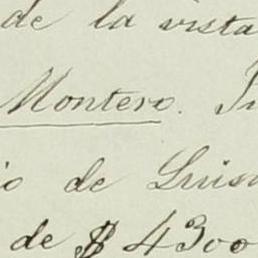 de la vista
Montero.
io de Luisa
de $ 4300